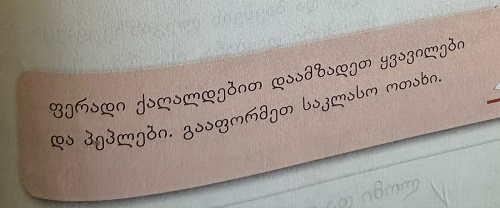 ფერადი ქაღალდებით დაამზადეთ ყვავილები
და პეპლები. გააფორმეთ საკლასო ოთახი.